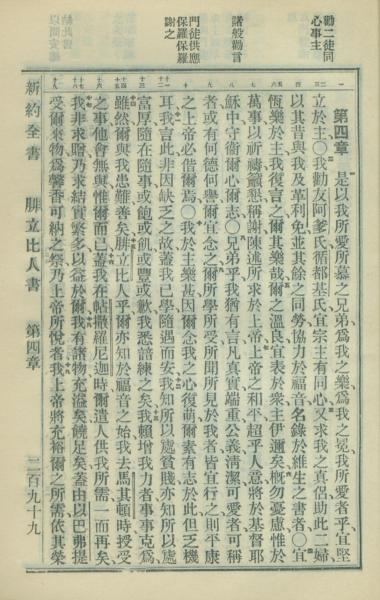 勸二徒同
心事主
諸般勸言
門徒供應
保羅保羅
謝之
第四章 是以我所愛所慕之兄弟爲我之樂爲我之冕我所愛者乎宜堅
立於主〇我勸友阿爹氏循都基氏宜宗主有同心又求我之真侣助此二婦
以其昔與我及革利免並其餘之同勞協力於福音名錄於維生之書者〇宜
恆樂於主我復言之爾其樂哉爾之溫良宜表於衆主伊邇矣概勿憂慮惟於
萬事以祈禱籲懇稱謝陳述所求於上帝上帝之和平超乎人意將於基督耶
穌中守衞爾心爾志〇兄弟乎我猶有言凡真實端重公義清潔可愛者可稱
者或有何德何譽爾宜念之爾所學所受所聞所見於我者皆宜行之則平康
之上帝必偕爾焉〇我於主樂甚因爾念我之心復萌爾素有志於此但乏機
耳我言此非因缺乏之故蓋我已學隨遇而安我知所以處貧賤亦知所以處
富厚隨在隨事或飽或飢或豐或歉我悉諳練之矣我賴增我力者事事克爲
雖然爾與我患難善矣腓立比人乎爾亦知於福音之始我去馬其頓時授受
之事他會無與惟爾而已蓋我在帖撒羅尼迦時爾遣人供我所需一而再矣
我非求贈乃求結實繁多以益於爾我有諸物充溢矣饒足矣蓋由以巴弗提
受爾來物爲馨香可納之祭乃上帝所悅者我上帝將充裕爾之所需依其榮
新約全書 腓立比人書 第四章 二百九十九